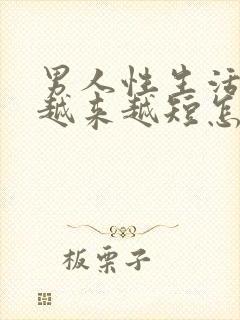 男人性生活
越来越短怎
板栗子